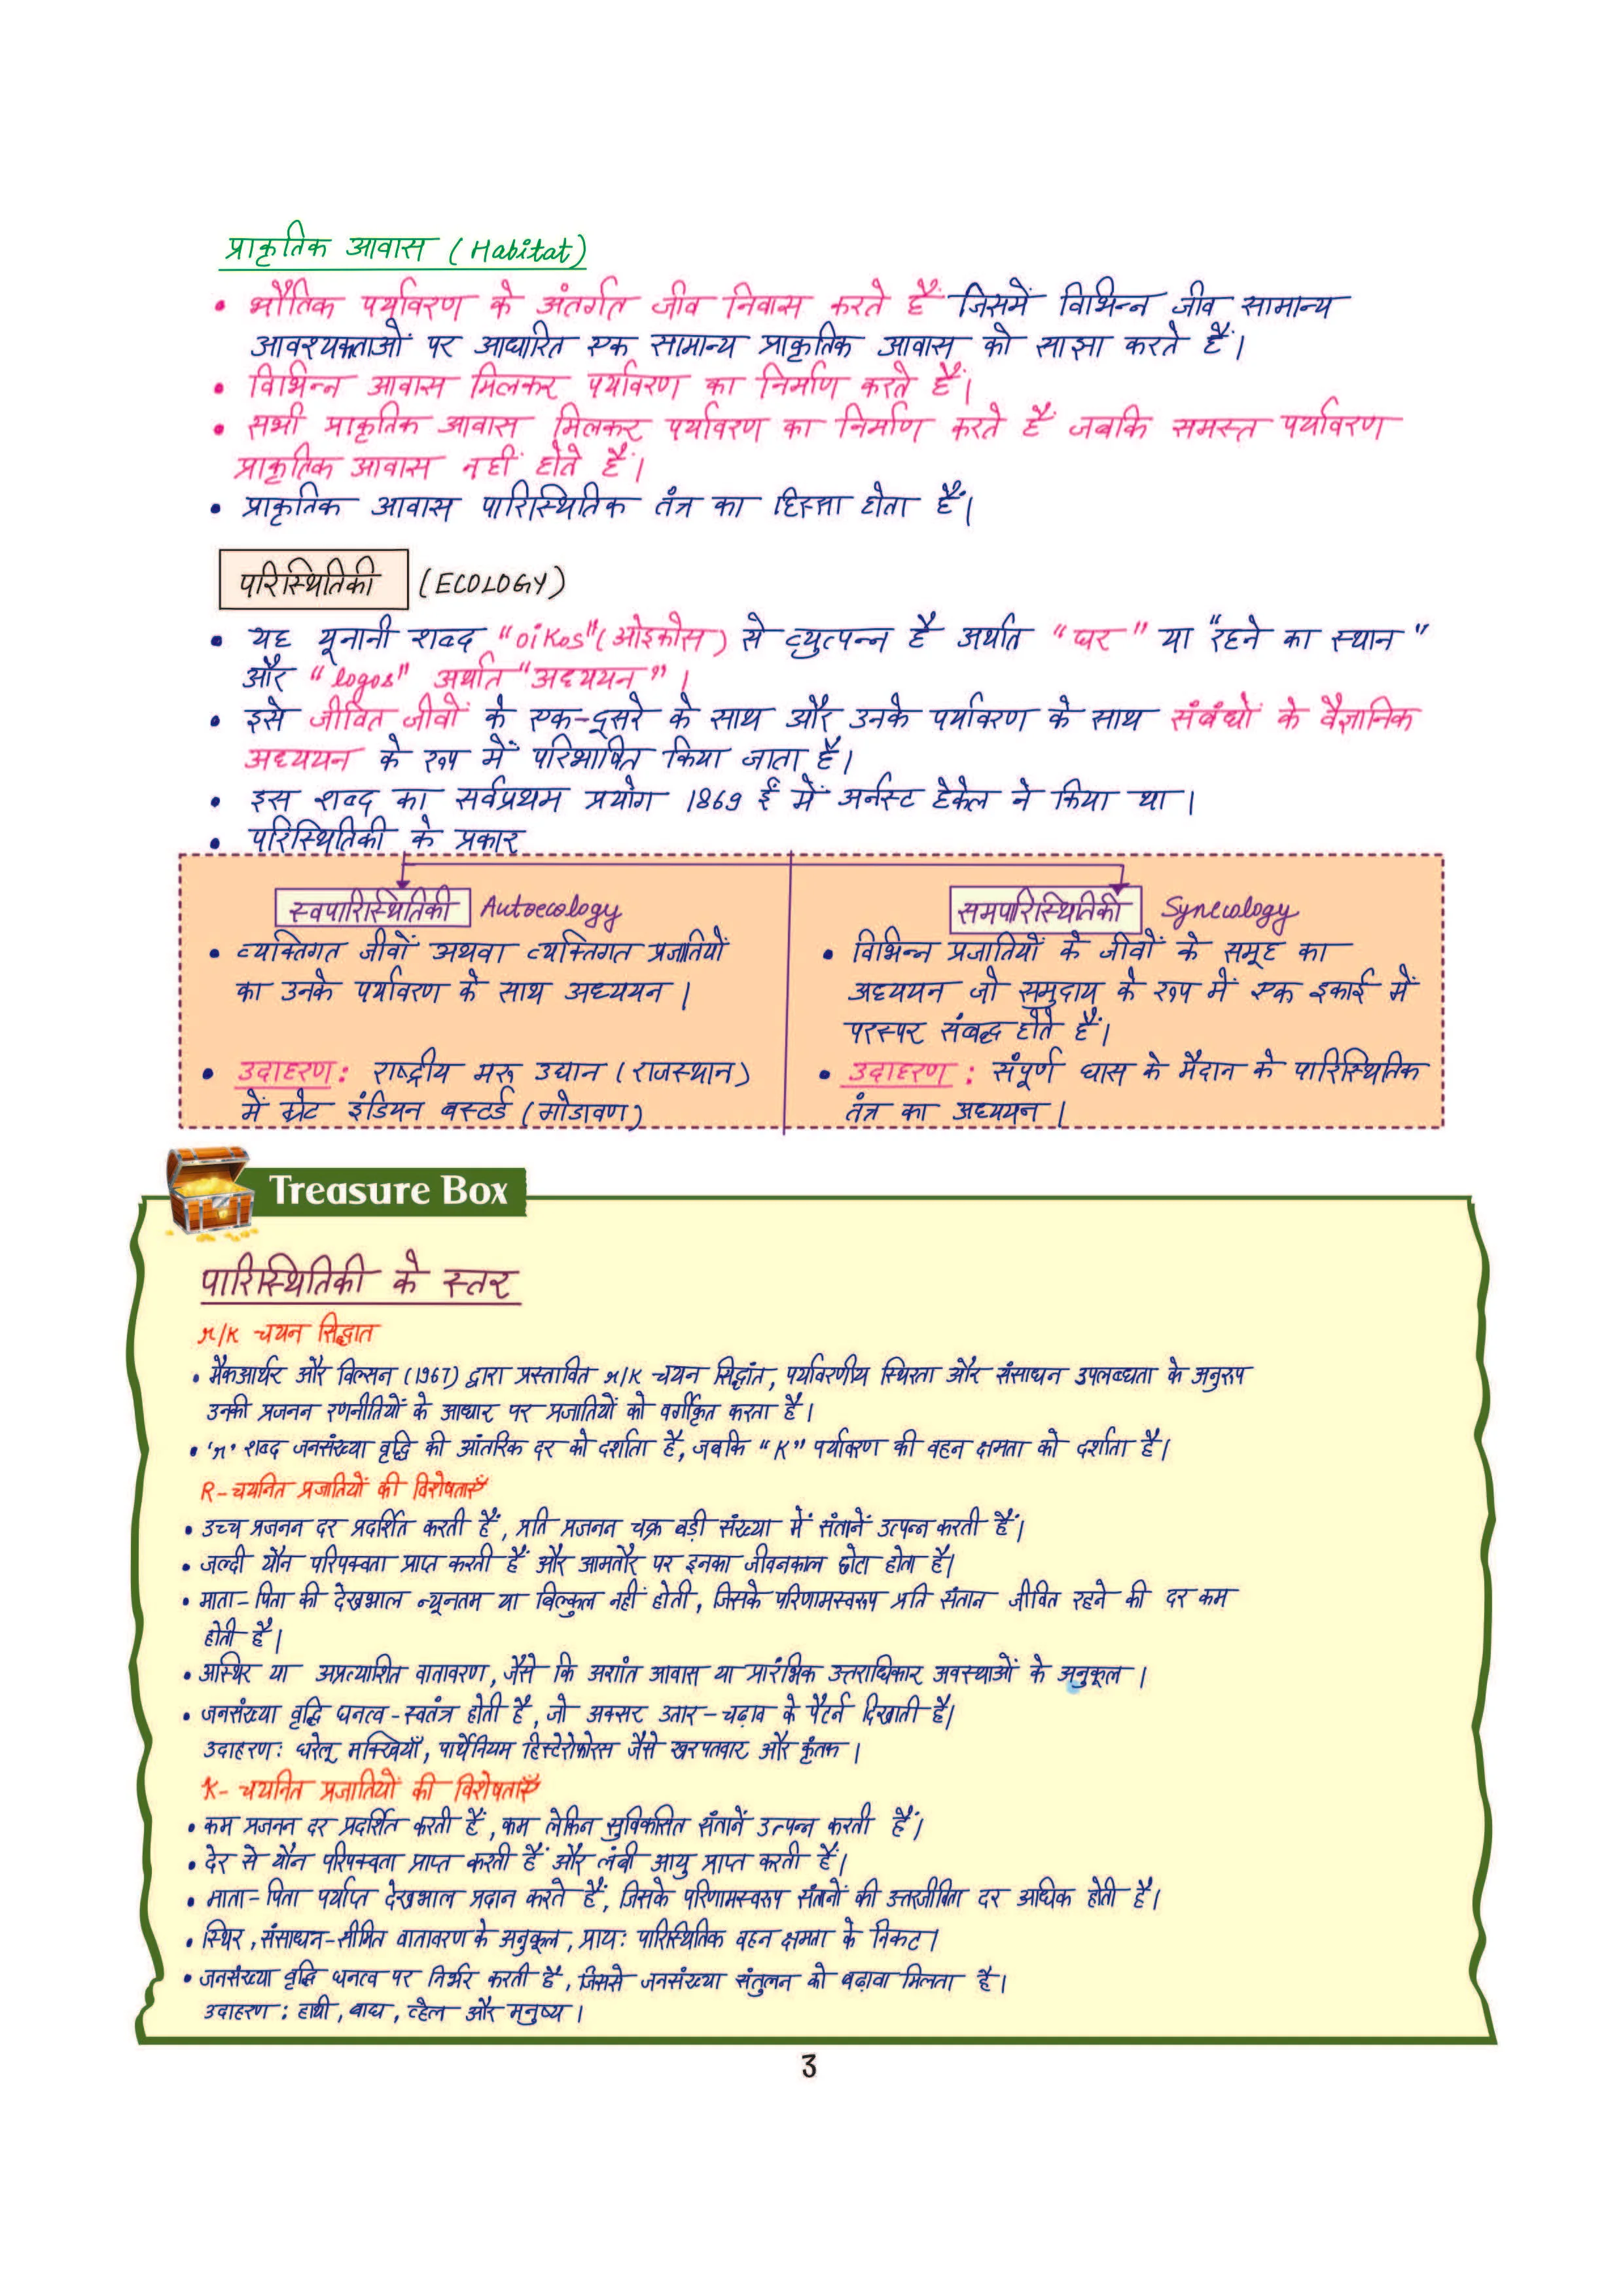 प्राकृतिक आवास (Habitat)
• भौतिक पर्यावरण के अंतर्गत जीव निवास करते हैं जिसमें विभिन्न जीव सामान्य
आवश्यकताओं पर आधारित एक सामान्य प्राकृतिक आवास को साझा करते हैं।
• विभिन्न आवास मिलकर पर्यावरण का निर्माण करते हैं।
• सभी प्राकृतिक आवास मिलकर पर्यावरण का निर्माण करते हैं जबकि समस्त पर्यावरण
प्राकृतिक आवास नहीं होते हैं।
• प्राकृतिक आवास पारिस्थितिक तंत्र का हिस्सा होता है।
परिस्थितिकी (ECOLOGY)
• यह यूनानी शब्द "oikos" (ओइकोस) से व्युत्पन्न है अर्थात "घर" या "रहने का स्थान"
और "logos" अर्थात "अध्ययन"।
• इसे जीवित जीवों के एक-दूसरे के साथ और उनके पर्यावरण के साथ संबंधों के वैज्ञानिक
अध्ययन के रूप में परिभाषित किया जाता है।
• इस शब्द का सर्वप्रथम प्रयोग 1869 ई में अर्नस्ट हेकेल ने किया था।
• परिस्थितिकी के प्रकार
स्वपारिस्थितिकी Autoecology
• व्यक्तिगत जीवों अथवा व्यक्तिगत प्रजातियों
का उनके पर्यावरण के साथ अध्ययन।
• उदाहरण: राष्ट्रीय मरू उद्यान (राजस्थान)
में ग्रेट इंडियन बस्टर्ड (गोडावण)
समपारिस्थितिकी Synecology
• विभिन्न प्रजातियों के जीवों के समूह का
अध्ययन जो समुदाय के रूप में एक इकाई में
परस्पर संबद्ध होते हैं।
• उदाहरण: संपूर्ण घास के मैदान के पारिस्थितिक
तंत्र का अध्ययन।
Treasure Box
पारिस्थितिकी के स्तर
r/K चयन सिद्धात
• मैकआर्थर और विल्सन (1967) द्वारा प्रस्तावित r/K चयन सिद्धांत, पर्यावरणीय स्थिरता और संसाधन उपलब्धता के अनुरूप
उनकी प्रजनन रणनीतियों के आधार पर प्रजातियों को वर्गीकृत करता है।
• 'r' शब्द जनसंख्या वृद्धि की आंतरिक दर को दर्शाता है, जबकि "K" पर्यावरण की वहन क्षमता को दर्शाता है।
R-चयनित प्रजातियों की विशेषताएँ
• उच्च प्रजनन दर प्रदर्शित करती हैं, प्रति प्रजनन चक्र बड़ी संख्या में संतानें उत्पन्न करती हैं।
• जल्दी यौन परिपक्वता प्राप्त करती हैं और आमतौर पर इनका जीवनकाल छोटा होता है।
• माता-पिता की देखभाल न्यूनतम या बिल्कुल नहीं होती, जिसके परिणामस्वरूप प्रति संतान जीवित रहने की दर कम
होती है।
• अस्थिर या अप्रत्याशित वातावरण, जैसे कि अशांत आवास या प्रारंभिक उत्तराधिकार अवस्थाओं के अनुकूल।
• जनसंख्या वृद्धि घनत्व-स्वतंत्र होती है, जो अक्सर उतार-चढ़ाव के पैटर्न दिखाती है।
उदाहरण: घरेलू मक्खियाँ, पार्थेनियम हिस्टेरोफोरस जैसे खरपतवार और कृंतक।
K- चयनित प्रजातियों की विशेषताएँ
• कम प्रजनन दर प्रदर्शित करती हैं, कम लेकिन सुविकसित संतानें उत्पन्न करती हैं।
• देर से यौन परिपक्वता प्राप्त करती हैं और लंबी आयु प्राप्त करती हैं।
• माता-पिता पर्याप्त देखभाल प्रदान करते हैं, जिसके परिणामस्वरूप संतानों की उत्तरजीविता दर अधिक होती है।
• स्थिर, संसाधन-सीमित वातावरण के अनुकूल, प्रायः पारिस्थितिक वहन क्षमता के निकट।
• जनसंख्या वृद्धि घनत्व पर निर्भर करती है, जिससे जनसंख्या संतुलन को बढ़ावा मिलता है।
उदाहरण: हाथी, बाघ, व्हेल और मनुष्य।
3